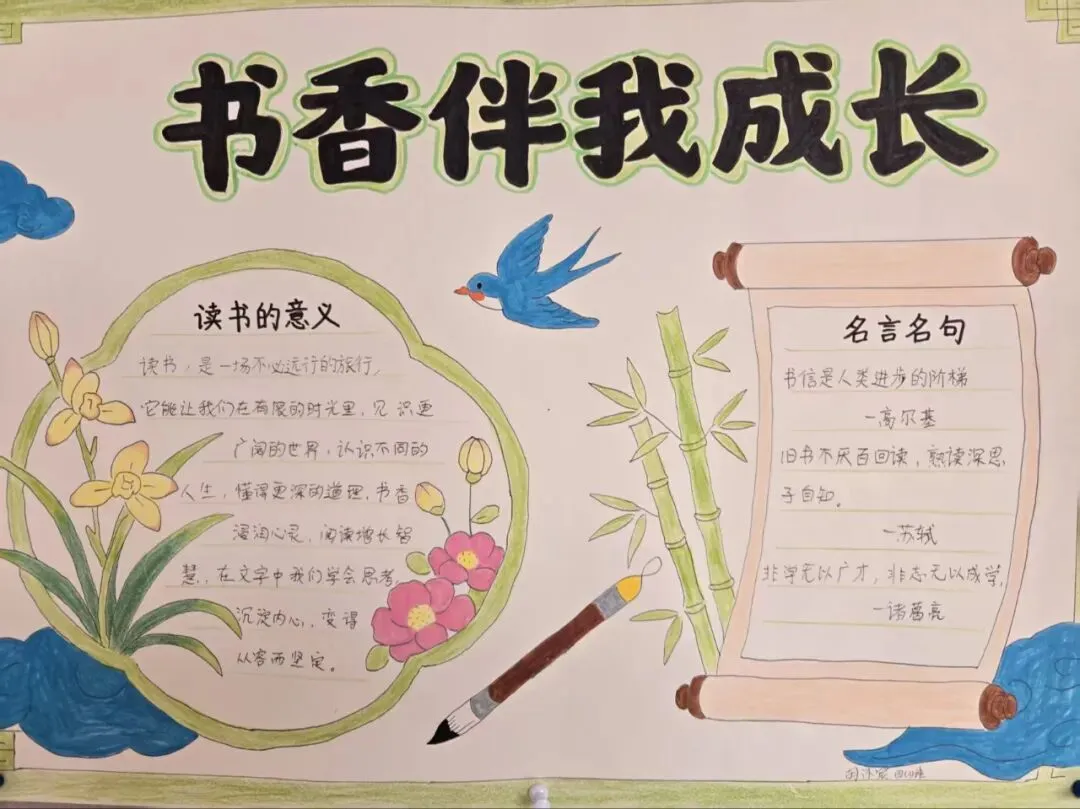 书香伴我成长
读书的意义
读书，是一场不必远行的旅行，
它能让我们在有限的时光里，见识更
广阔的世界，认识不同的
人生，懂得更深的道理，书香
浸润心灵，阅读增长智
慧，在文字中我们学会思考，
沉淀内心，变得
从容而坚定。
名言名句
书信是人类进步的阶梯
—高尔基
旧书不厌百回读，熟读深思
子自知。
—苏轼
非学无以广才，非志无以成学，
—诸葛亮